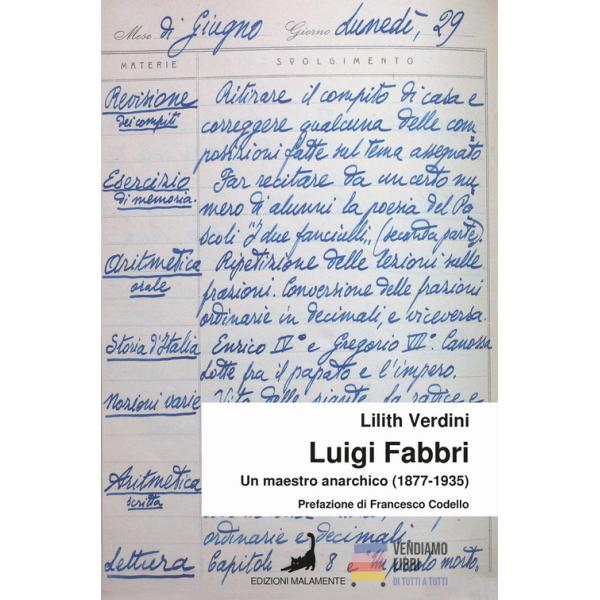 Mese di Giugno Giorno Lunedì, 29
MATERIE SVOLGIMENTO
Revisione Ritirare il compito di casa e
dei compiti correggere qualcuna delle com
posizioni fatte sul tema assegnato
Esercizio Far recitare da un certo nu
di memoria. mero di alunni la poesia del Pa
scoli "I due fanciulli" (seconda parte).
Aritmetica Ripetizione delle lezioni sulle
orale frazioni. Conversione delle frazioni
ordinarie in decimali, e viceversa.
Storia d'Italia Enrico IV° e Gregorio VII°. Canossa
Lotte fra il papato e l'impero.
Nozioni varie Vita delle piante. La radice e
Lilith Verdini
Luigi Fabbri
Un maestro anarchico (1877-1935)
Prefazione di Francesco Codello
Aritmetica
scritta
ordinarie e decimali.
Lettura Capitoli 8 e "Un punto morto.
EDIZIONI MALAMENTE
VENDIAMO
LIBRI
DI TUTTI A TUTTI